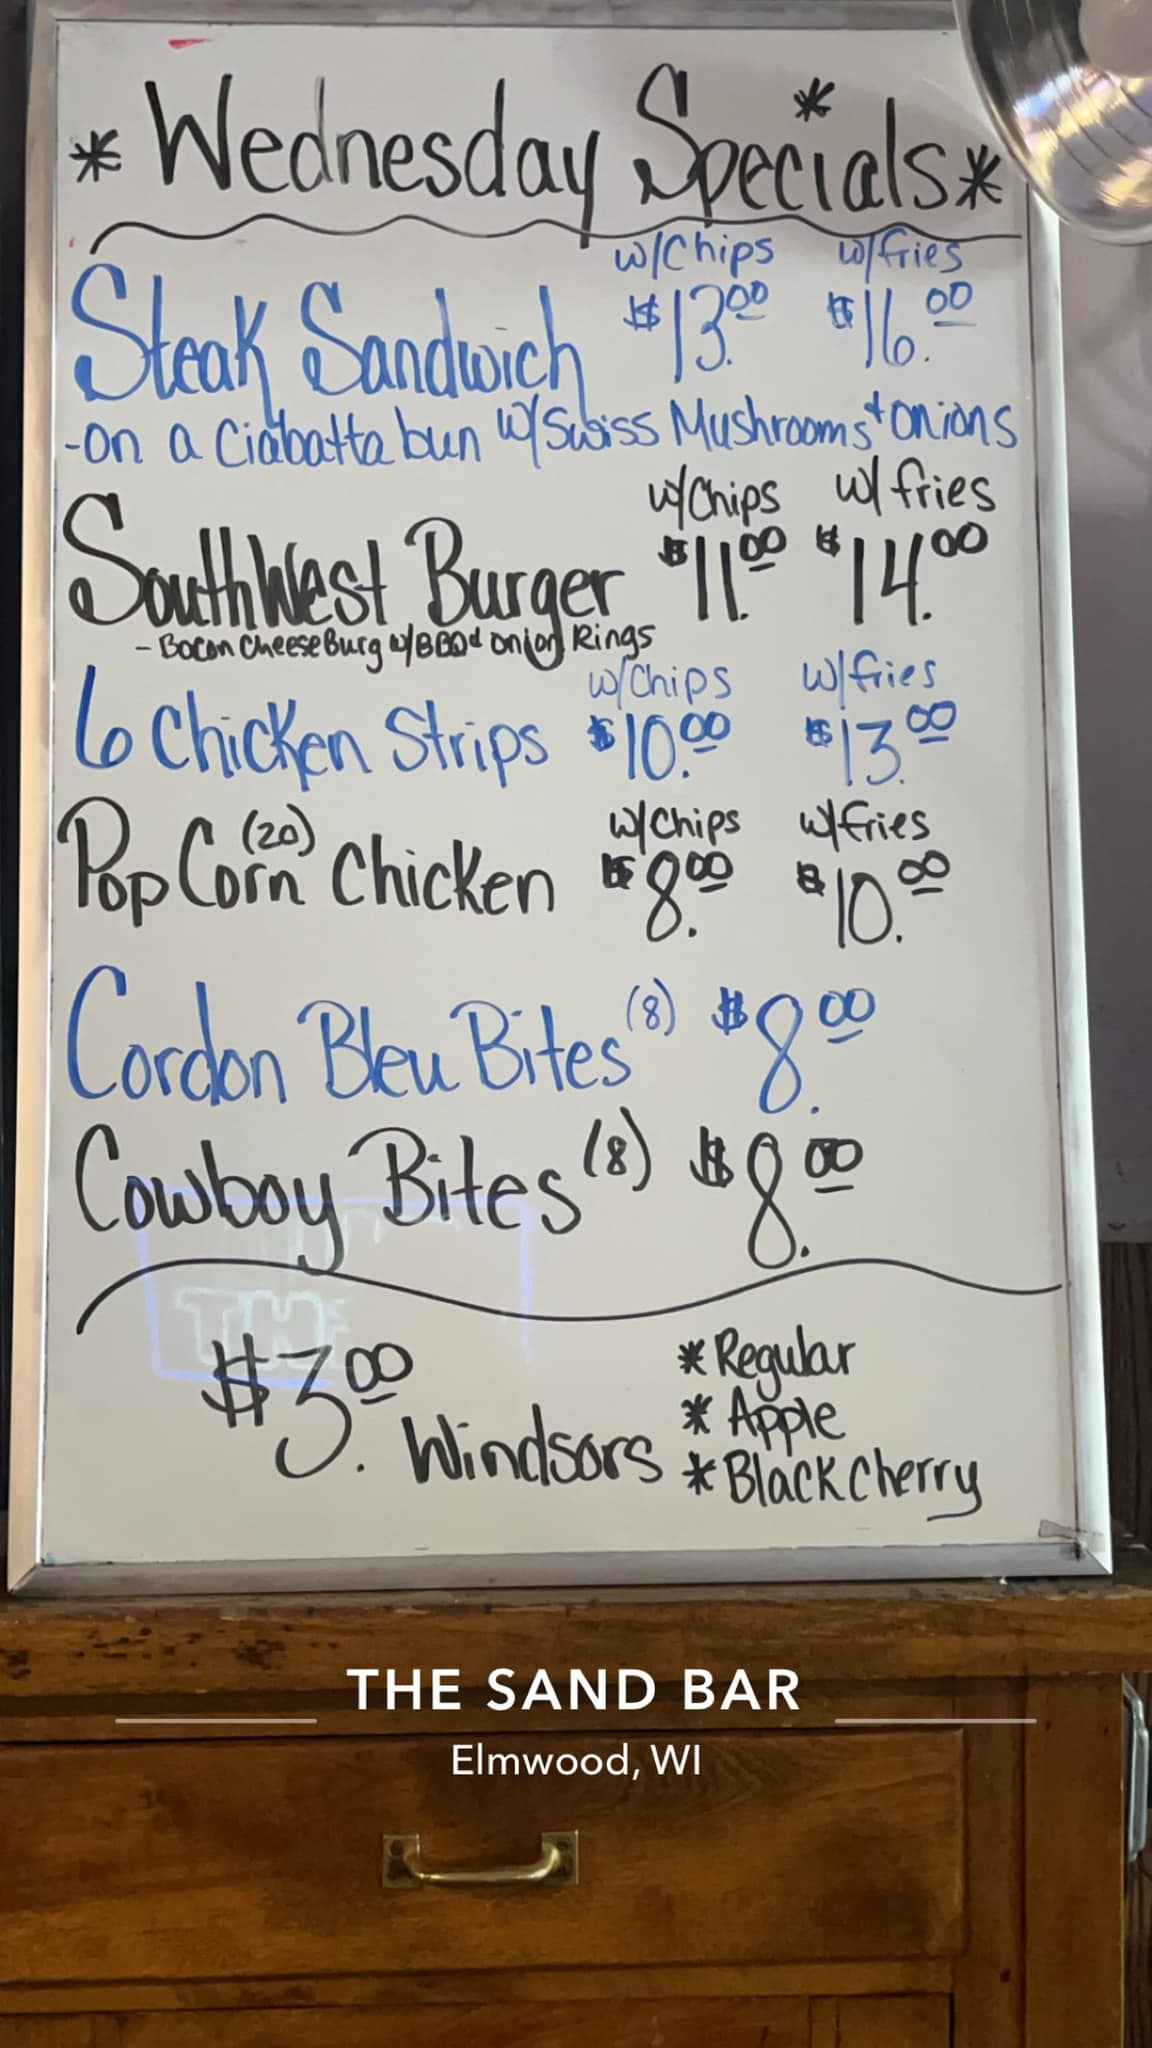 * Wednesday Specials *
w/Chips w/fries
Steak Sandwich $13.00 $16.00
-on a Ciabatta bun w/Swiss Mushrooms & Onions
w/Chips w/fries
SouthWest Burger $11.00 $14.00
- Bacon CheeseBurg w/BBQ & Onion Rings
w/Chips w/fries
6 Chicken Strips $10.00 $13.00
w/Chips w/fries
Pop Corn (20) Chicken $8.00 $10.00
Cordon Bleu Bites (8) $8.00
Cowboy Bites (8) $8.00
$3.00 Windsors
* Regular
* Apple
* Black Cherry
THE SAND BAR
Elmwood, WI